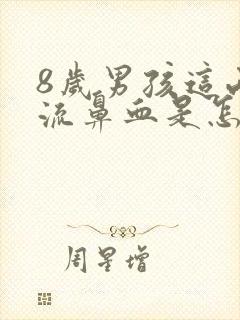 8歲男孩這
流鼻血是怎
周星增